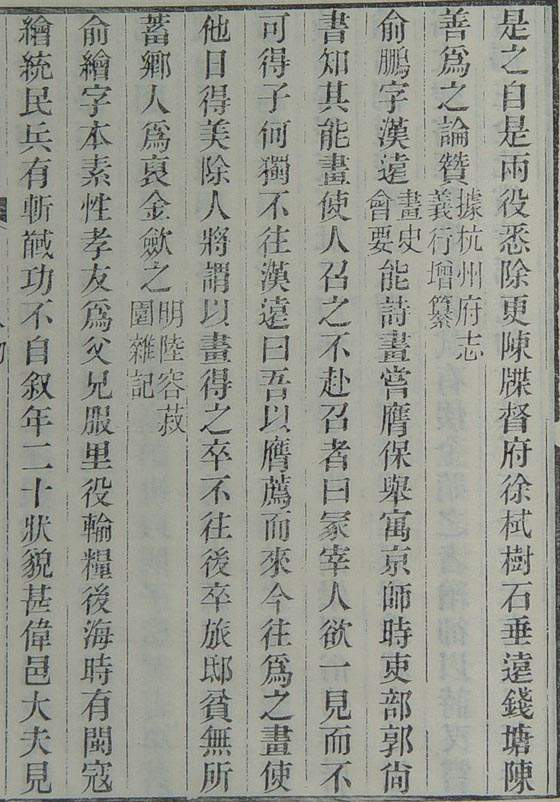 是之自是兩役悉除更陳牒督府徐栻樹石垂遠錢塘陳
善爲之論贊據杭州府志義行增纂
俞鵬字漢遠畫史會要能詩畫嘗膺保舉寓京師時吏部郭尙
書知其能畫使人召之不赴召者曰冢宰人欲一見而不
可得子何獨不往漢遠曰吾以膺薦而來今往爲之畫使
他日得美除人將謂以畫得之卒不往後卒旅邸貧無所
蓄鄉人爲裒金歛之明陸容菽園雜記
俞繪字本素性孝友爲父兄服里役輸糧後海時有閩寇
繪統民兵有斬馘功不自叙年二十狀貌甚偉邑大夫見